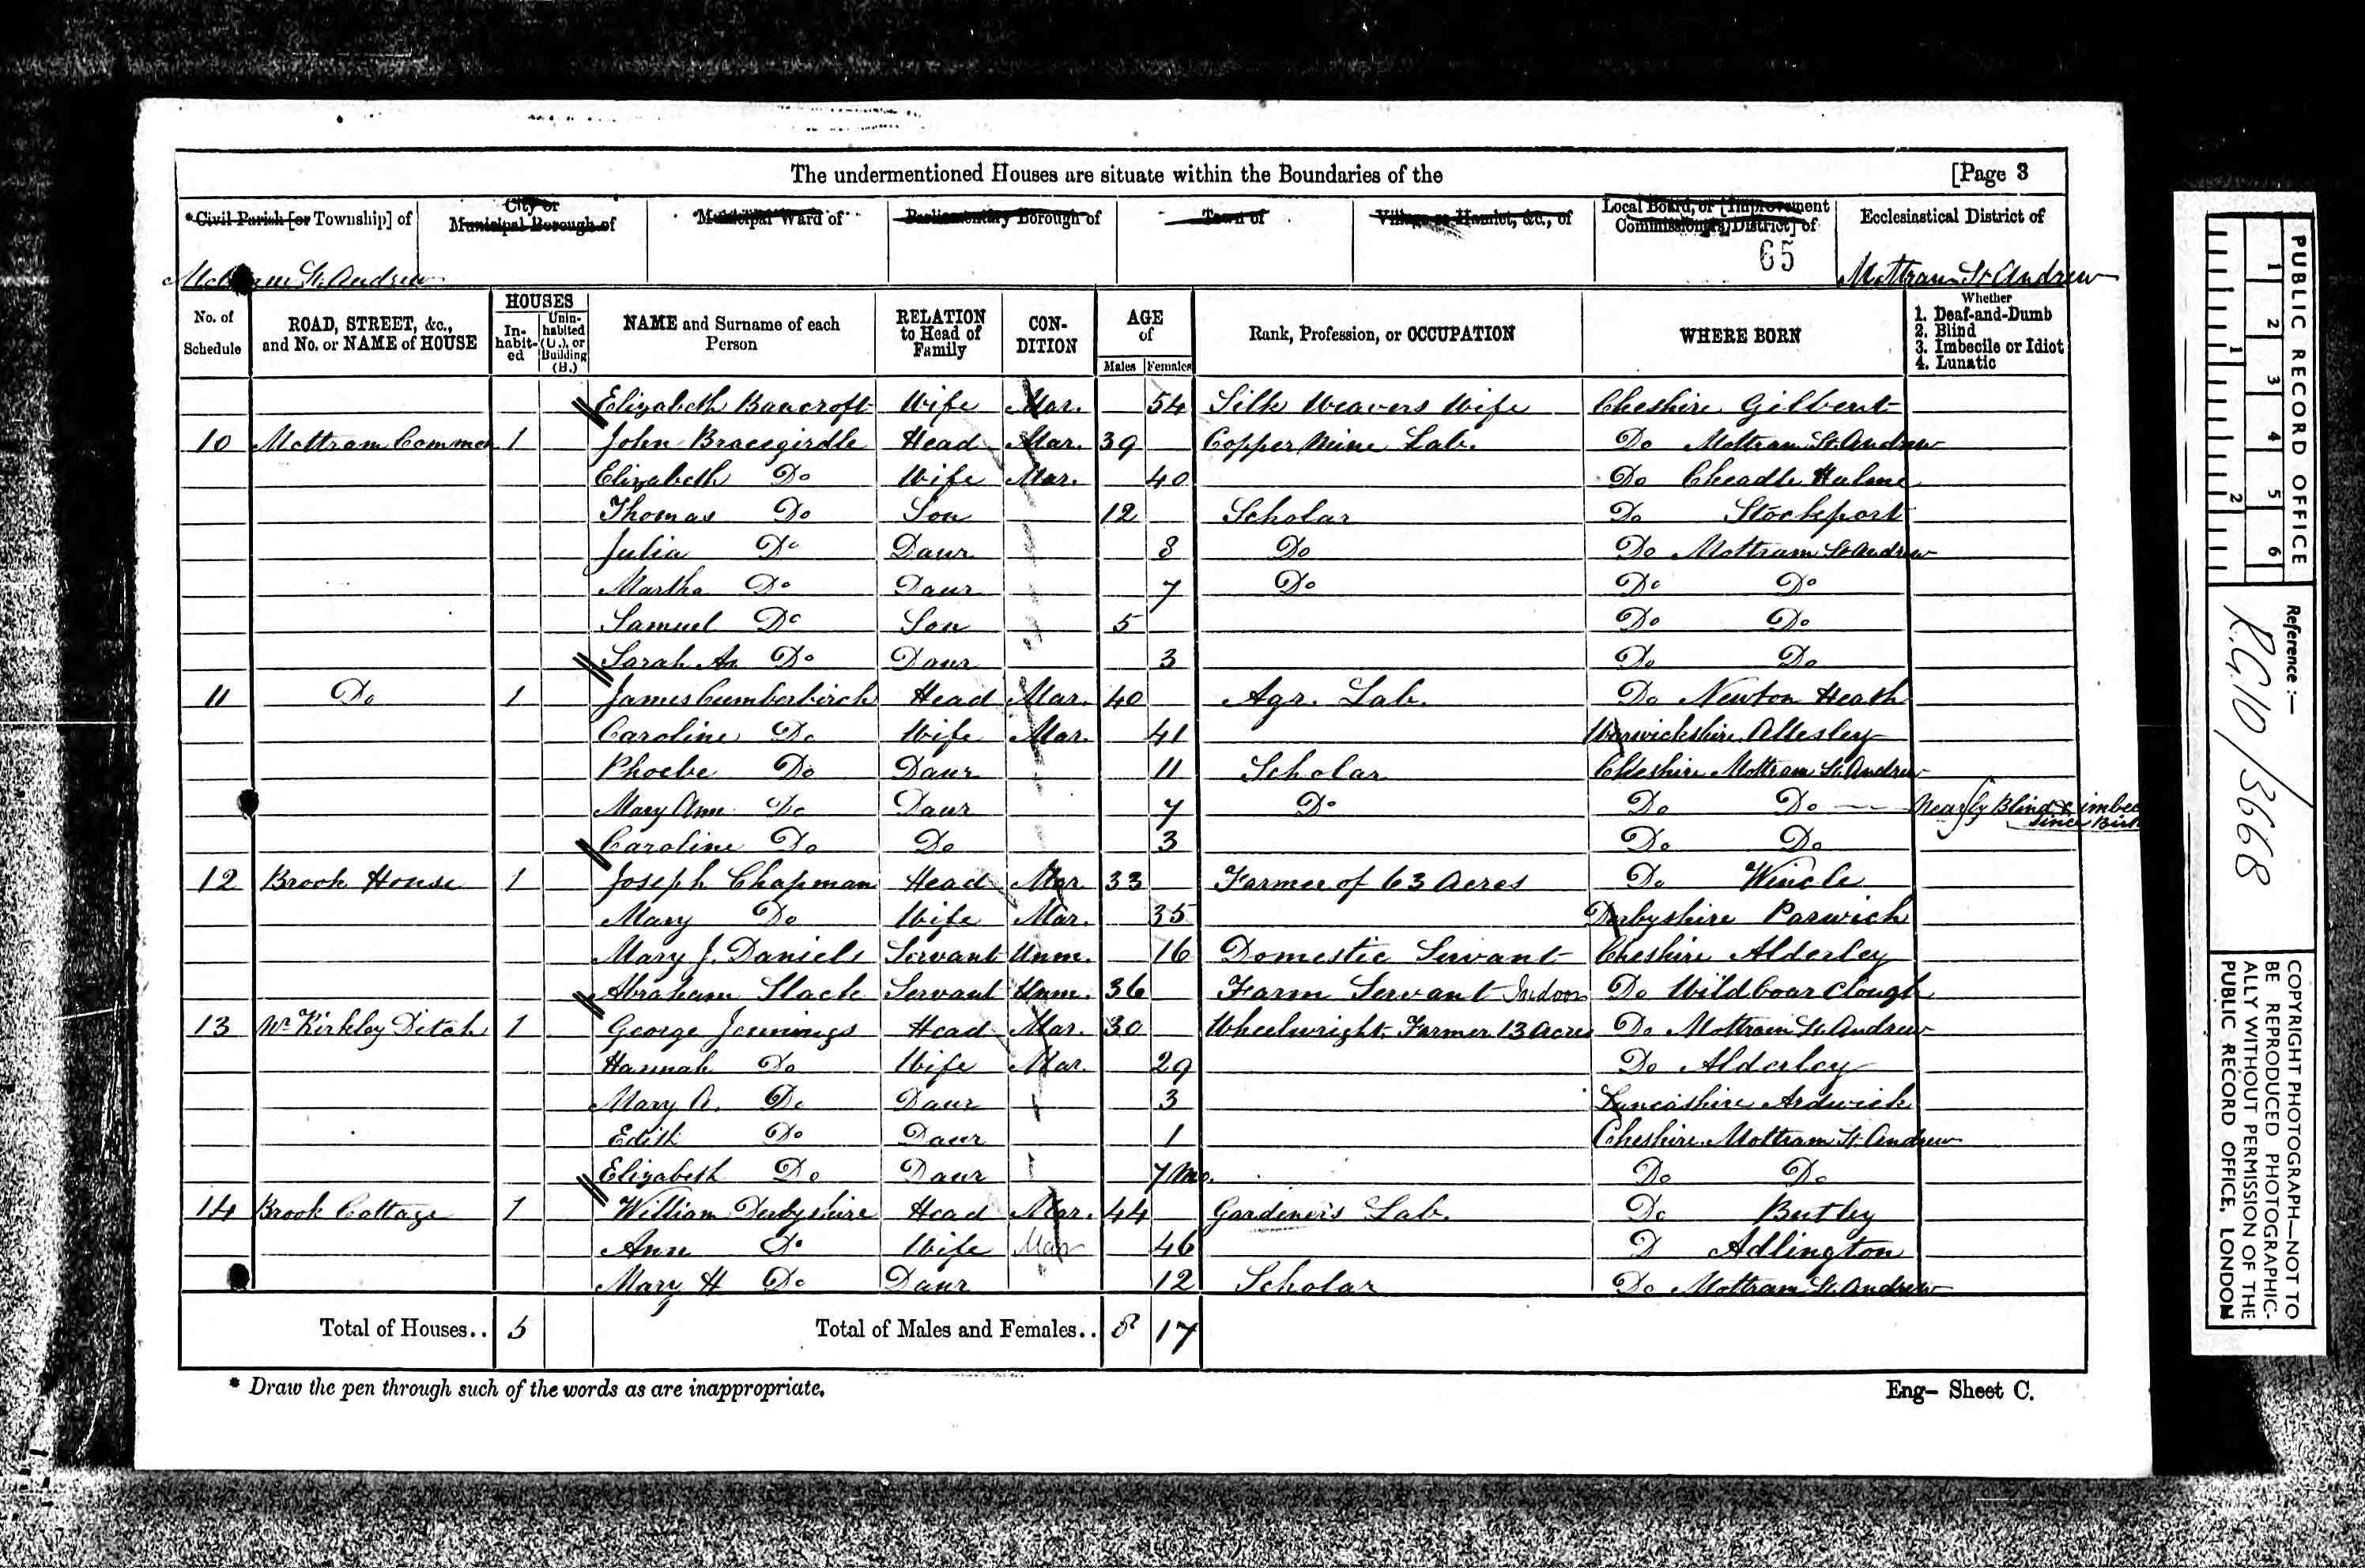 The undermentioned Houses are situate within the Boundaries of the [Page 3
*Civil Parish [or Township] of
City or Municipal Borough of
Municipal Ward of
Parliamentary Borough of
Town of
Village or Hamlet, &c., of
Local Board, or [Improvement Commissioners District] of
Ecclesiastical District of
65
Mottram St Andrew
Mottram St Andrew
No. of Schedule
ROAD, STREET, &c., and No. or NAME of HOUSE
HOUSES
In-habit-ed
Unin-habited (U.), or Building (B.)
NAME and Surname of each Person
RELATION to Head of Family
CON-DITION
AGE of
Males Females
Rank, Profession, or OCCUPATION
WHERE BORN
Whether
1. Deaf-and-Dumb
2. Blind
3. Imbecile or Idiot
4. Lunatic
Elizabeth Bancroft Wife Mar. 54 Silk Weavers Wife Cheshire Gilbent
10 Mottram Common 1 John Bracegirdle Head Mar. 39 Copper Mine Lab. Do Mottram St Andrew
Elizabeth Do Wife Mar. 40 Do Cheadle Hulme
Thomas Do Son 12 Scholar Do Stockport
Julia Do Daur 8 Do Do Mottram St Andrew
Martha Do Daur 7 Do Do Do
Samuel Do Son 5 Do Do
Sarah An Do Daur 3 Do Do
11 Do 1 James Cumberbirch Head Mar. 40 Agr. Lab. Do Newton Heath
Caroline Do Wife Mar. 41 Warwickshire Allesley
Phoebe Do Daur 11 Scholar Cheshire Mottram St Andrew
Mary Ann Do Daur 7 Do Do Do Nearly Blind & imbec
since Birt
Caroline Do Do 3 Do Do
12 Brook House 1 Joseph Chapman Head Mar 33 Farmer of 63 Acres Do Wincle
Mary Do Wife Mar. 35 Derbyshire Parwich
Mary J. Daniels Servant Unm. 16 Domestic Servant Cheshire Alderley
Abraham Slack Servant Unm. 36 Farm Servant Indoor Do Wildboar Clough
13 Nr Kirkley Ditch 1 George Jennings Head Mar. 30 Wheelwright, Farmer 13 Acres Do Mottram St Andrew
Hannah Do Wife Mar. 29 Do Alderley
Mary A. Do Daur 3 Lancashire Ardwick
Edith Do Daur 1 Cheshire Mottram St Andrew
Elizabeth Do Daur 7 Mo. Do Do
14 Brook Cottage 1 William Derbyshire Head Mar. 44 Gardener's Lab. Do Butley
Ann Do Wife Mar 46 D Adlington
Mary H Do Daur 12 Scholar Do Mottram St Andrew
Total of Houses.. 5 Total of Males and Females.. 8 17
* Draw the pen through such of the words as are inappropriate.
Eng- Sheet C.
PUBLIC RECORD OFFICE
1 2 3 4 5 6
1 2
Reference :-
R.G. 10/3668
COPYRIGHT PHOTOGRAPH—NOT TO
BE REPRODUCED PHOTOGRAPHIC-
ALLY WITHOUT PERMISSION OF THE
PUBLIC RECORD OFFICE, LONDON